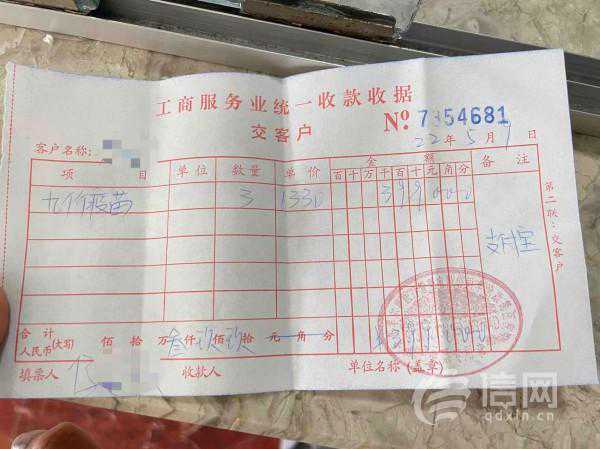 工商服务业统一收款收据
交客户
№ 7354681
22年5月9日
客户名称:
项目 单位 数量 单价 金额 备注
百 十 万 千 百 十 元 角 分
九价疫苗 3 1330 3 9 9 0 0 0
支付宝
第二联:交客户
合计人民币(大写) 佰 拾 万叁仟玖佰玖拾 元 角 分 399000
填票人 收款人 单位名称(盖章)
信网
qdxin.cn